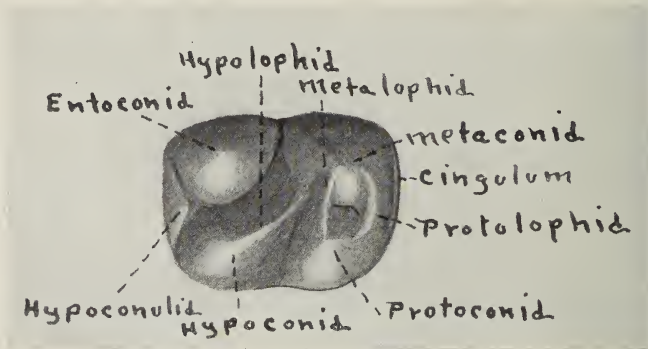 Hypolophid
metalophid
Entoconid
metaconid
cingulum
Protolophid
Hypoconulid
Hypoconid
Protoconid